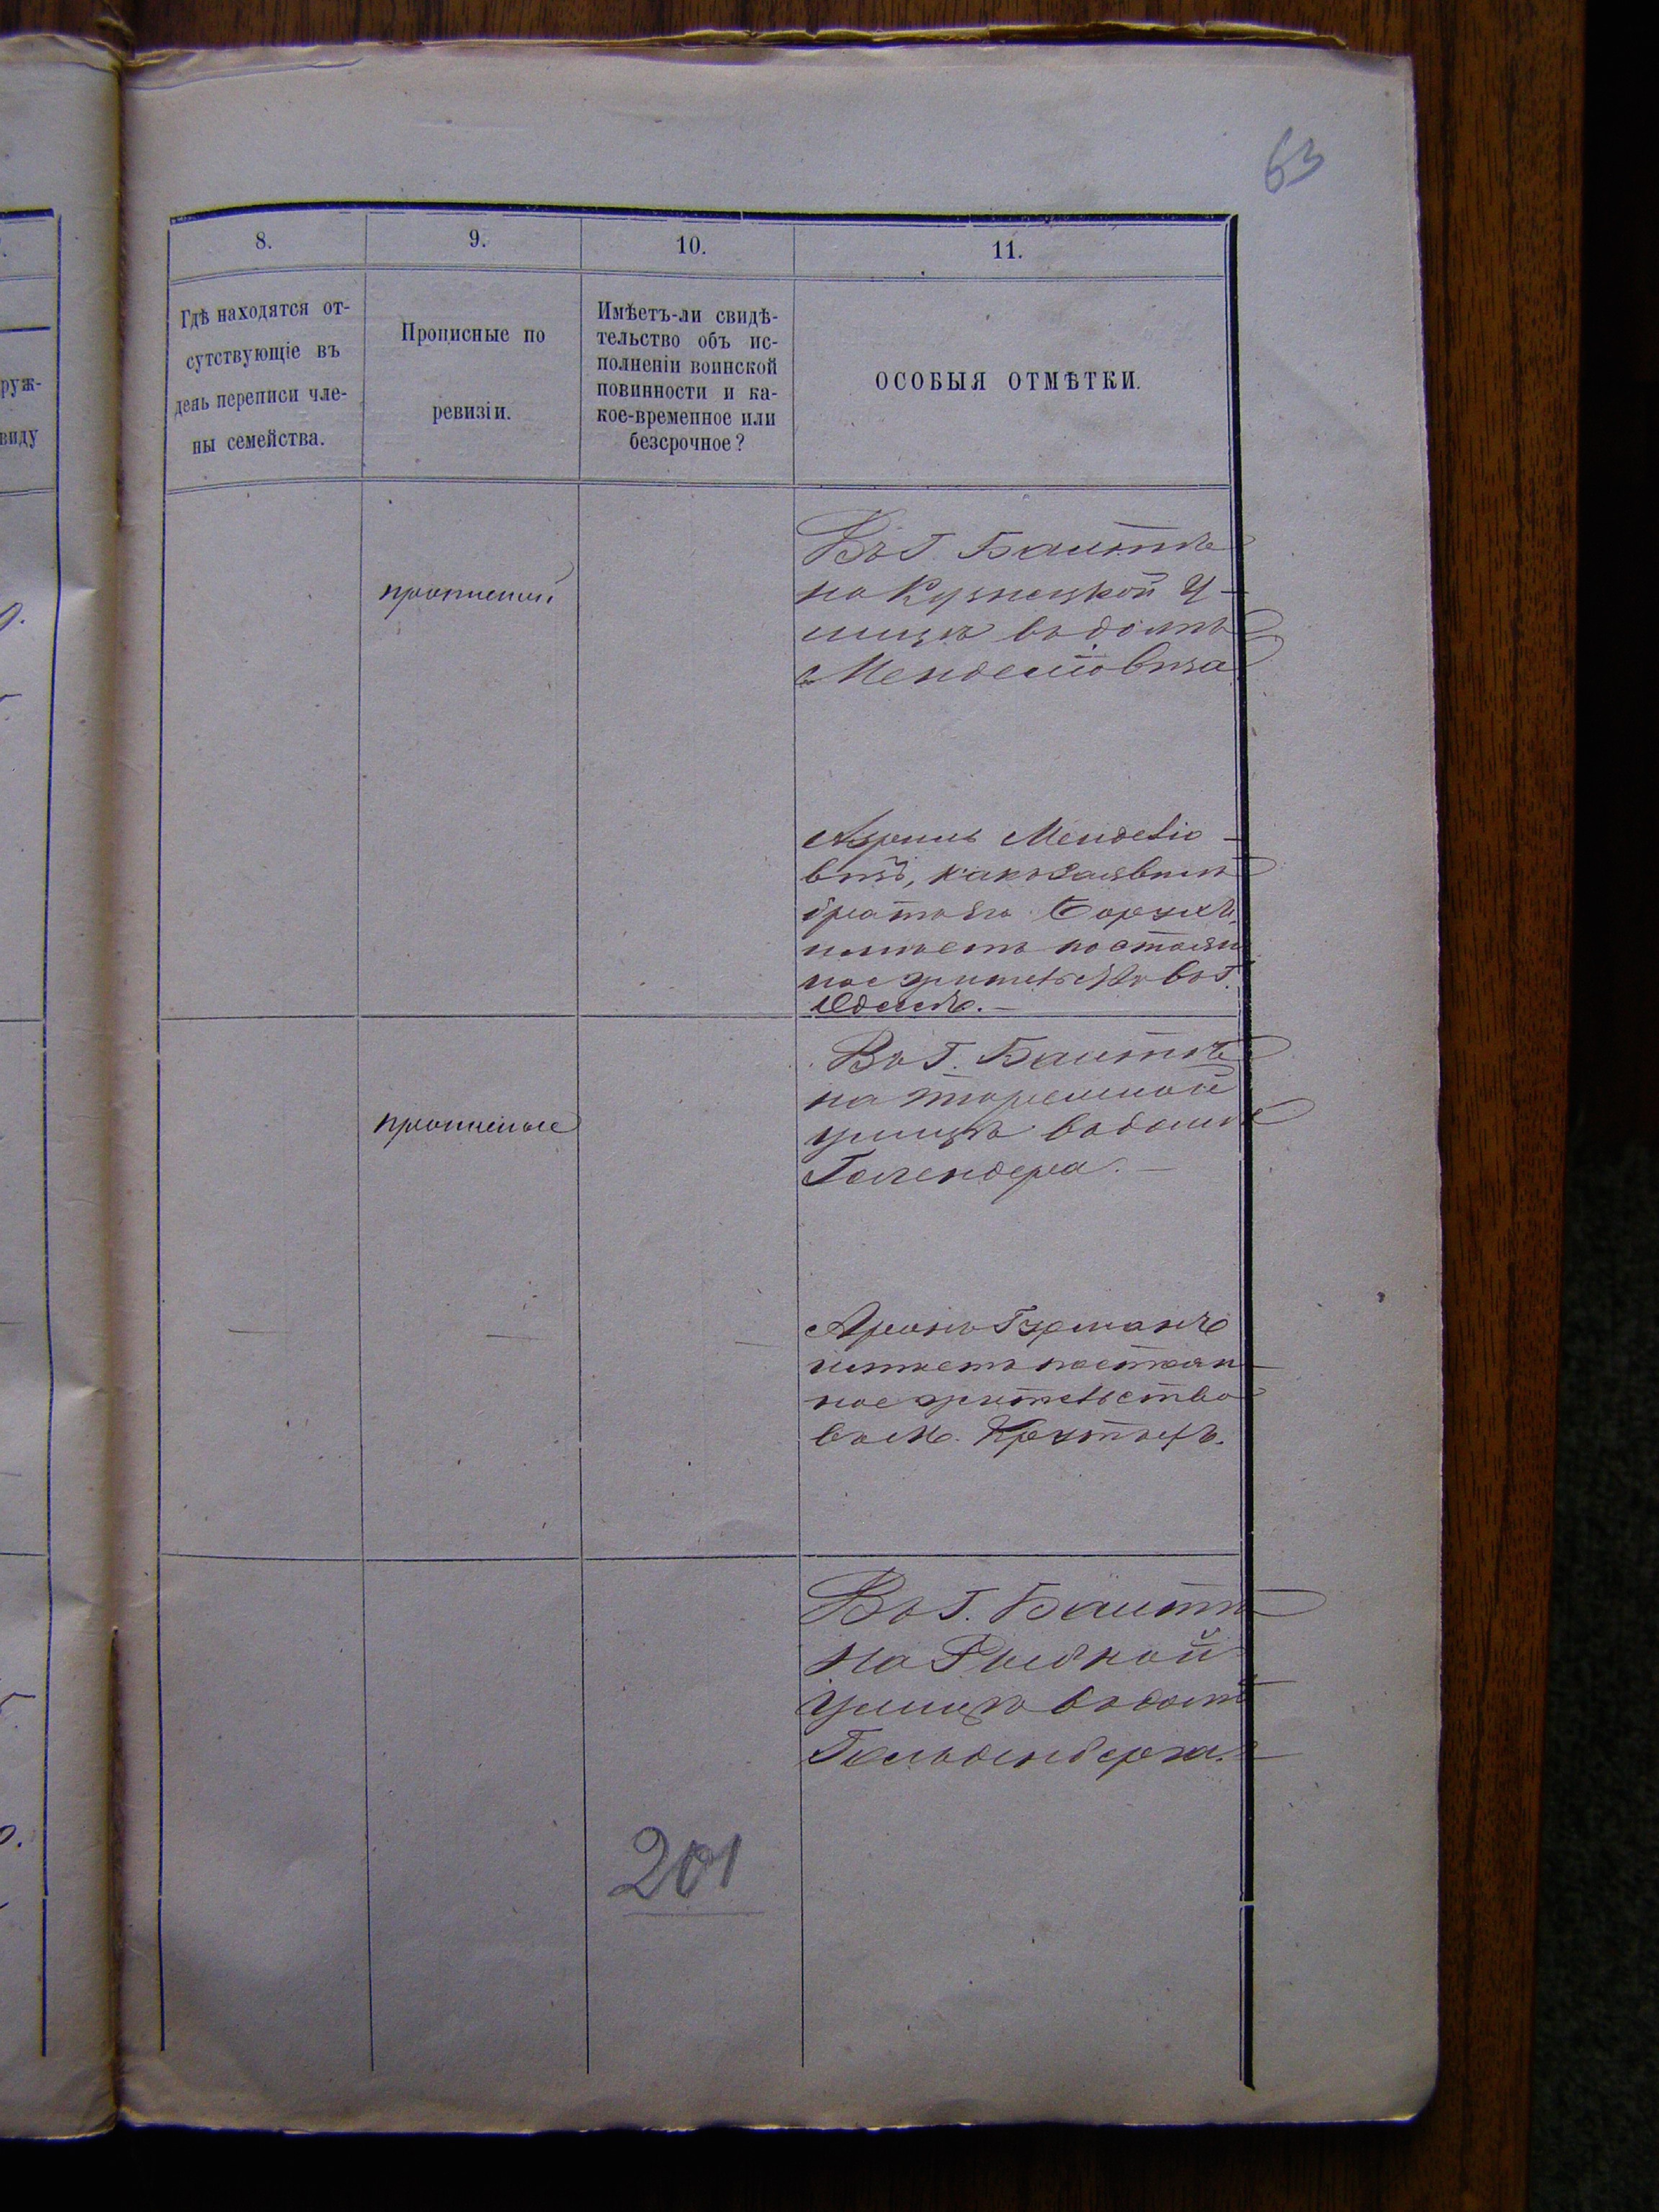 63
8.
9.
10.
11.
Гдѣ находятся от-
сутствующіе въ
день переписи чле-
ны семейства.
Прописные по
ревизіи.
Имѣетъ-ли свидѣ-
тельство объ ис-
полненіи воинской
повинности и ка-
кое-временное или
безсрочное?
ОСОБЫЯ ОТМѢТКИ.
руж-
виду
прописный
Въ г. Балтѣ
на Кузнецкой у-
лицѣ въ домѣ
Менделіовича
Менделіо-
вичъ, какъ заявилъ
братъ его Борухъ,
имѣетъ постоян
ное жительство въ г.
Одессѣ.—
прописные
Въ г. Балтѣ
на Тюремной
улицѣ въ домѣ
Галендера.—
Аронъ Гуръманъ
имѣетъ постоян-
ное жительство
въ м.
Въ г. Балтѣ
на Рыбной
улицѣ въ домѣ
Гольденберга.—
201